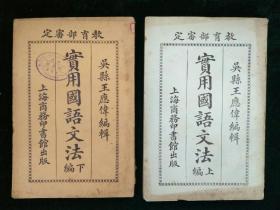 定審部育教
吳縣王應偉編輯
實用國語文法
下編
上海商務印書館出版
定審部育教
吳縣王應偉編輯
實用國語文法
上編
上海商務印書館出版